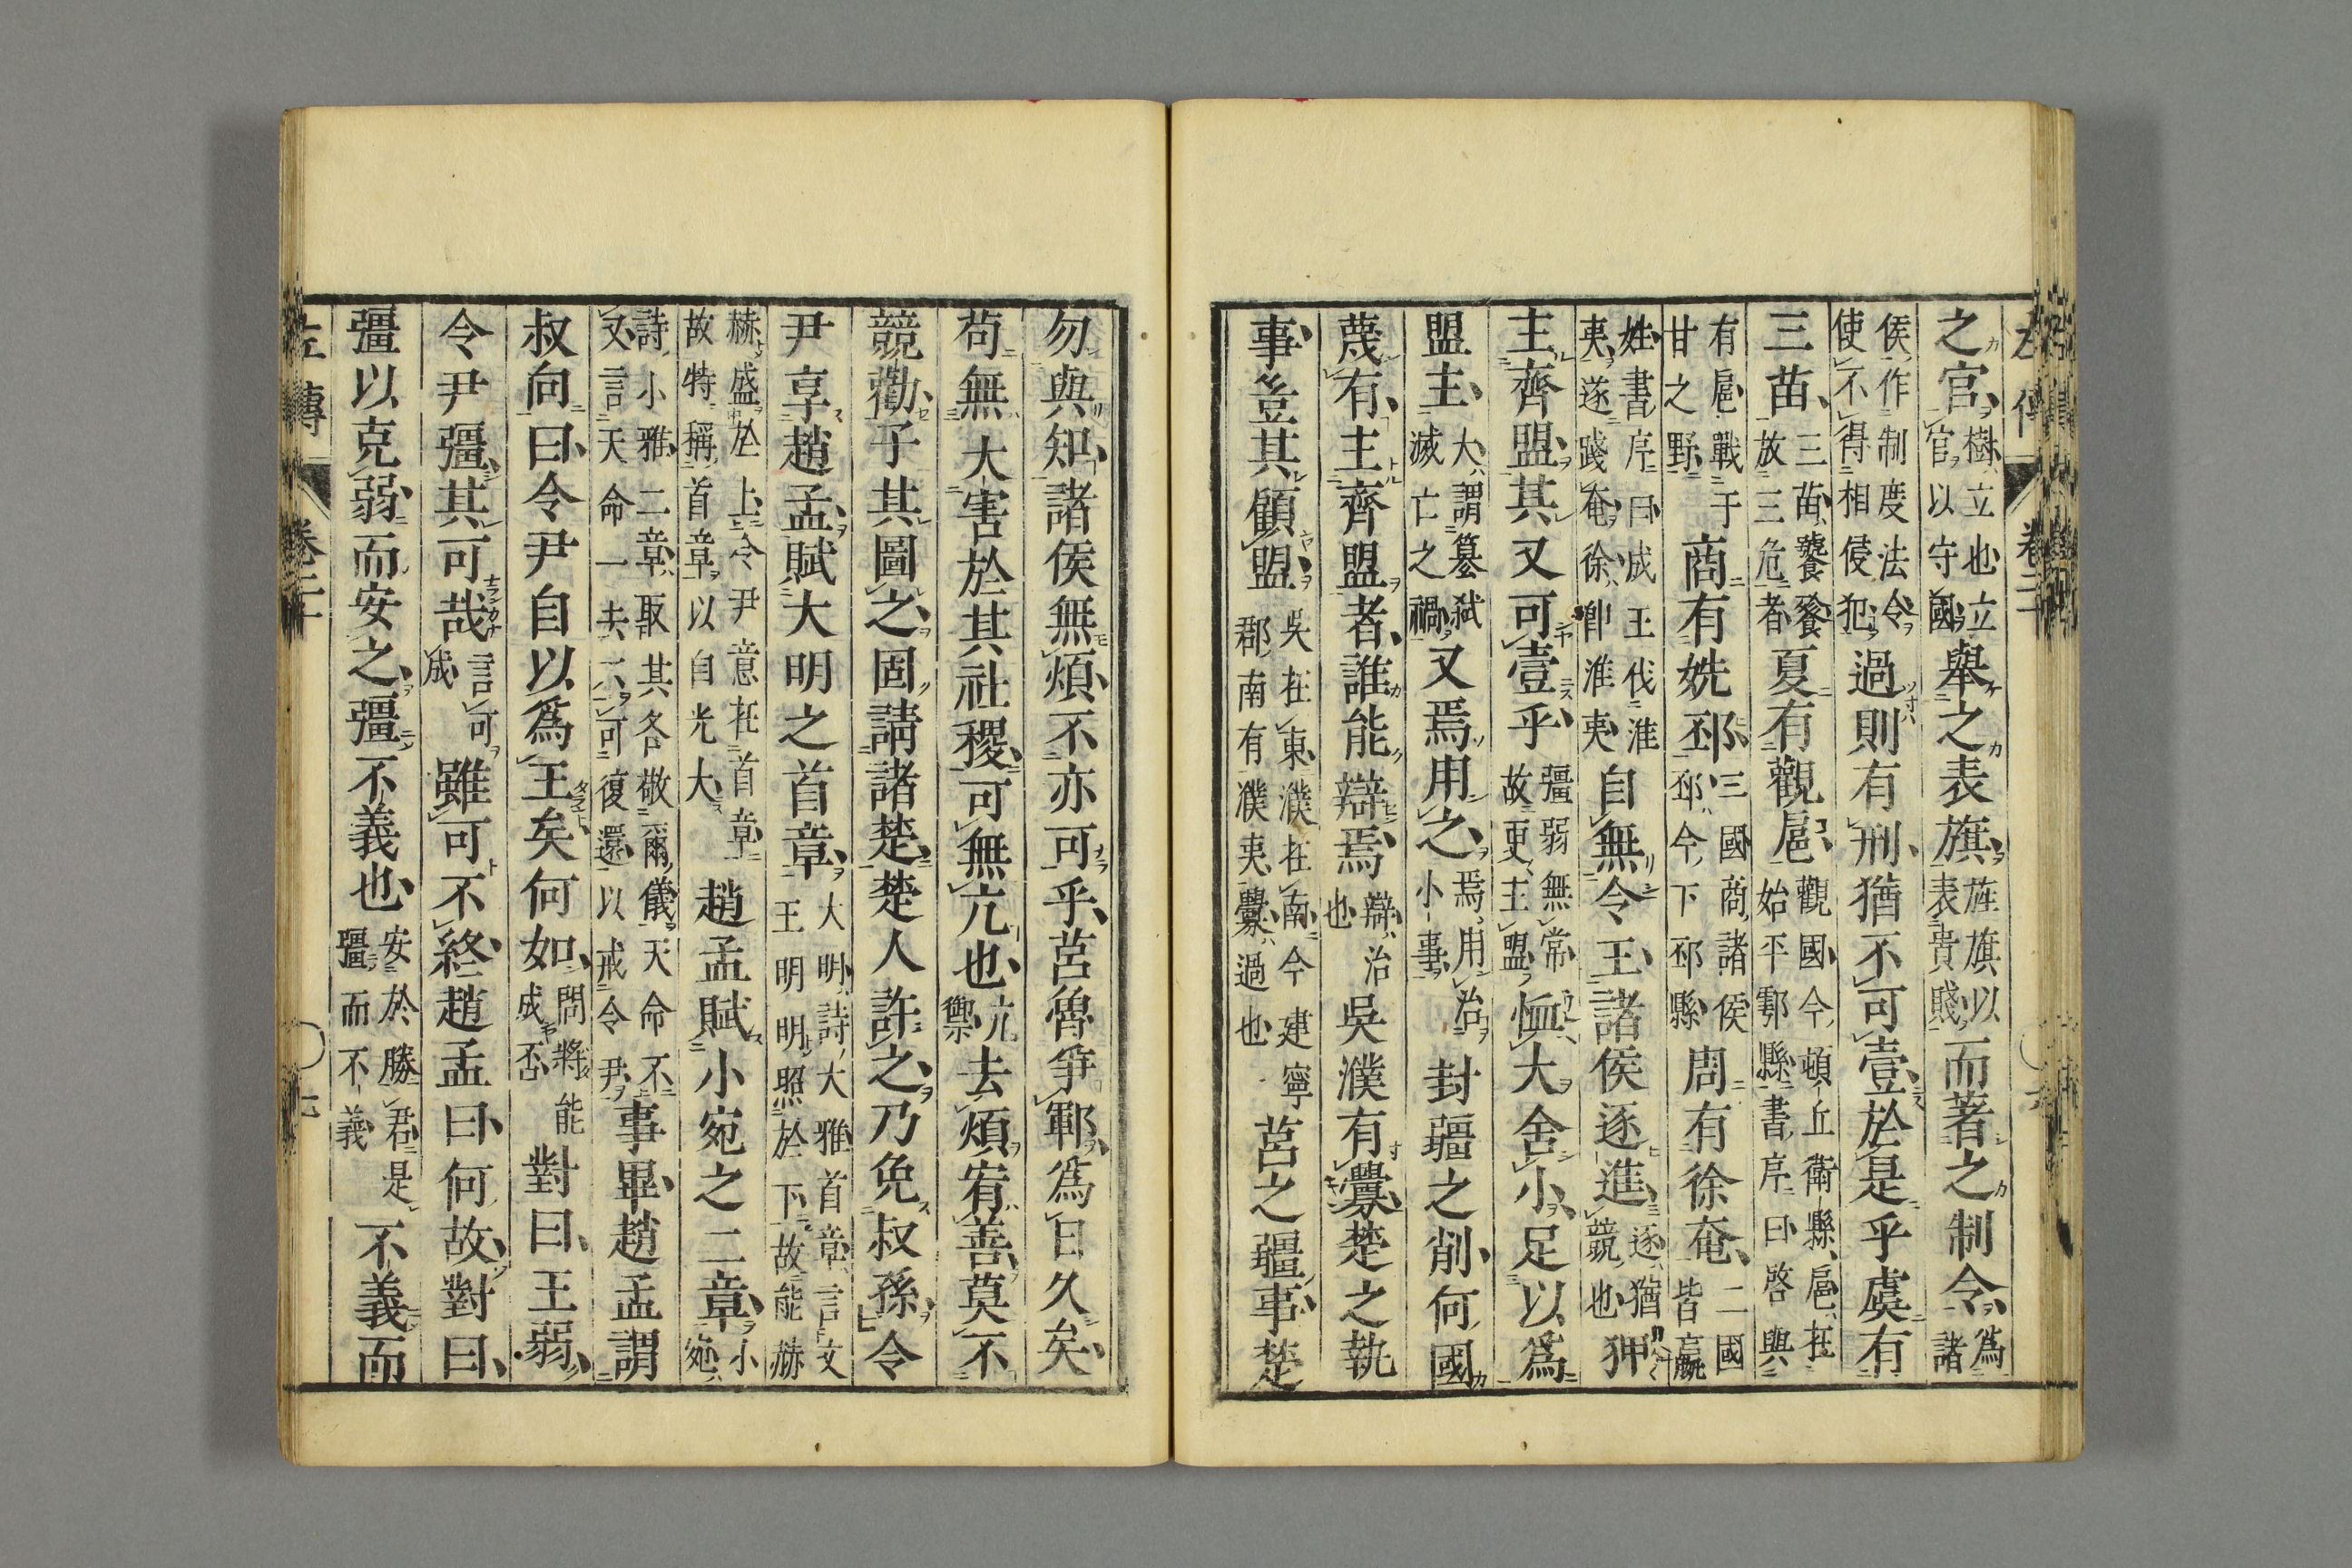 左傳 卷二十
之官樹立也立官以守國舉之表旗旌旗以表貴賤而著之制令爲諸
侯作制度法令使不得相侵犯過則有刑猶不可壹於是乎虞有
三苗三苗饕餮放三危者夏有觀扈觀國今頓丘衛縣扈在始平鄠縣書序曰啓與
有扈戰于甘之野商有姺邳三國商諸侯邳今下邳縣周有徐奄二國皆嬴
姓書序曰成王伐淮夷遂踐奄徐卽淮夷自無令王諸侯逐進逐猶競也狎
主齊盟其又可壹乎彊弱無常故更主盟恤大舍小足以爲
盟主大謂篡弑滅亡之禍又焉用之焉用治小事封疆之削何國
蔑有主齊盟者誰能辯焉辯治也吳濮有釁楚之執
事豈其顧盟吳在東濮在南今建寧郡南有濮夷釁過也莒之疆事楚
勿與知諸侯無煩不亦可乎莒魯爭鄆爲日久矣
苟無大害於其社稷可無亢也亢禦去煩宥善莫不
競勸子其圖之固請諸楚楚人許之乃免叔孫令
尹享趙孟賦大明之首章大明詩大雅首章言文王明明照於下故能赫
赫盛於上令尹意在首章故特稱首章以自光大趙孟賦小宛之二章小宛
詩小雅二章取其各敬爾儀天命不又言天命一去不可復還以戒令尹事畢趙孟謂
叔向曰令尹自以爲王矣何如問將能成否對曰王弱
令尹彊其可哉言可成雖可不終趙孟曰何故對曰
彊以克弱而安之彊不義也安於勝君是彊而不義不義而
左傳 卷二十 七